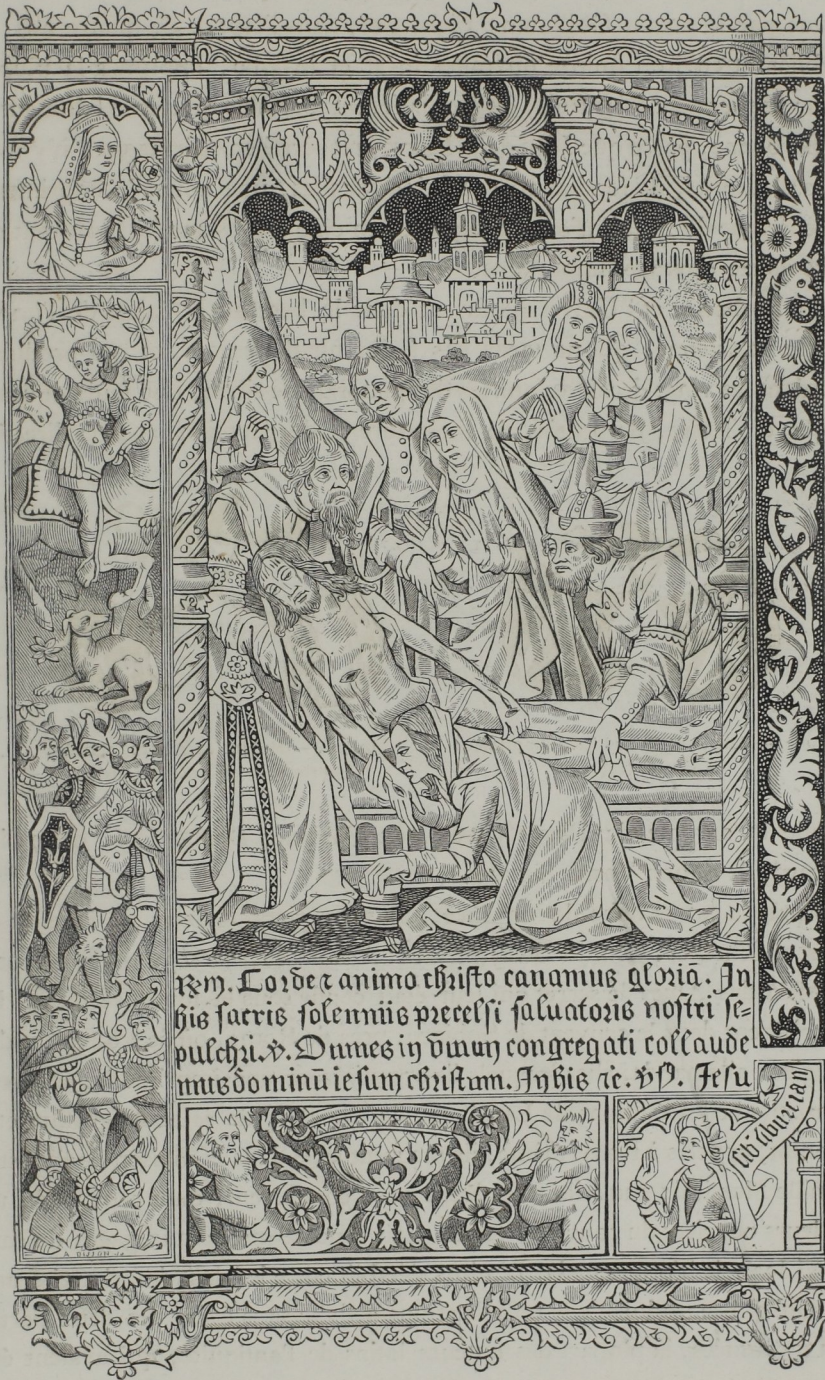 Rem. Corde ⁊ animo christo canamus gloriā. In
his sacris solenniis precelsi saluatoris nostri se⸗
pulchri. ℣. Omnes in vnum congregati collaude
mus dominū iesum christum. In his ⁊c. ℣s. Jesu
A. DUJON